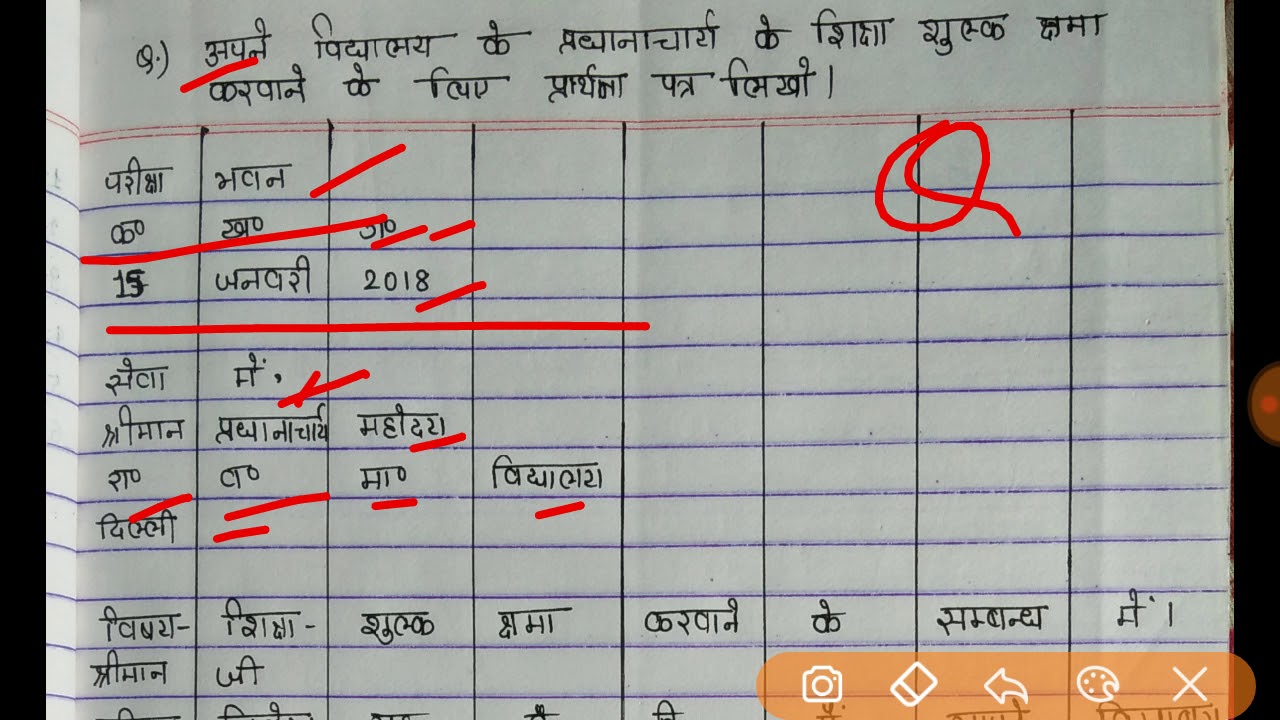 Q.) अपने विद्यालय के प्रधानाचार्य के शिक्षा शुल्क क्षमा
करवाने के लिए प्रार्थना पत्र लिखो।
परीक्षा भवन
क० ख० ग०
15 जनवरी 2018
सेवा में,
श्रीमान प्रधानाचार्य महोदय
रा० व० मा० विद्यालय
दिल्ली
विषय- शिक्षा- शुल्क क्षमा करवाने के सम्बन्ध में।
श्रीमान जी